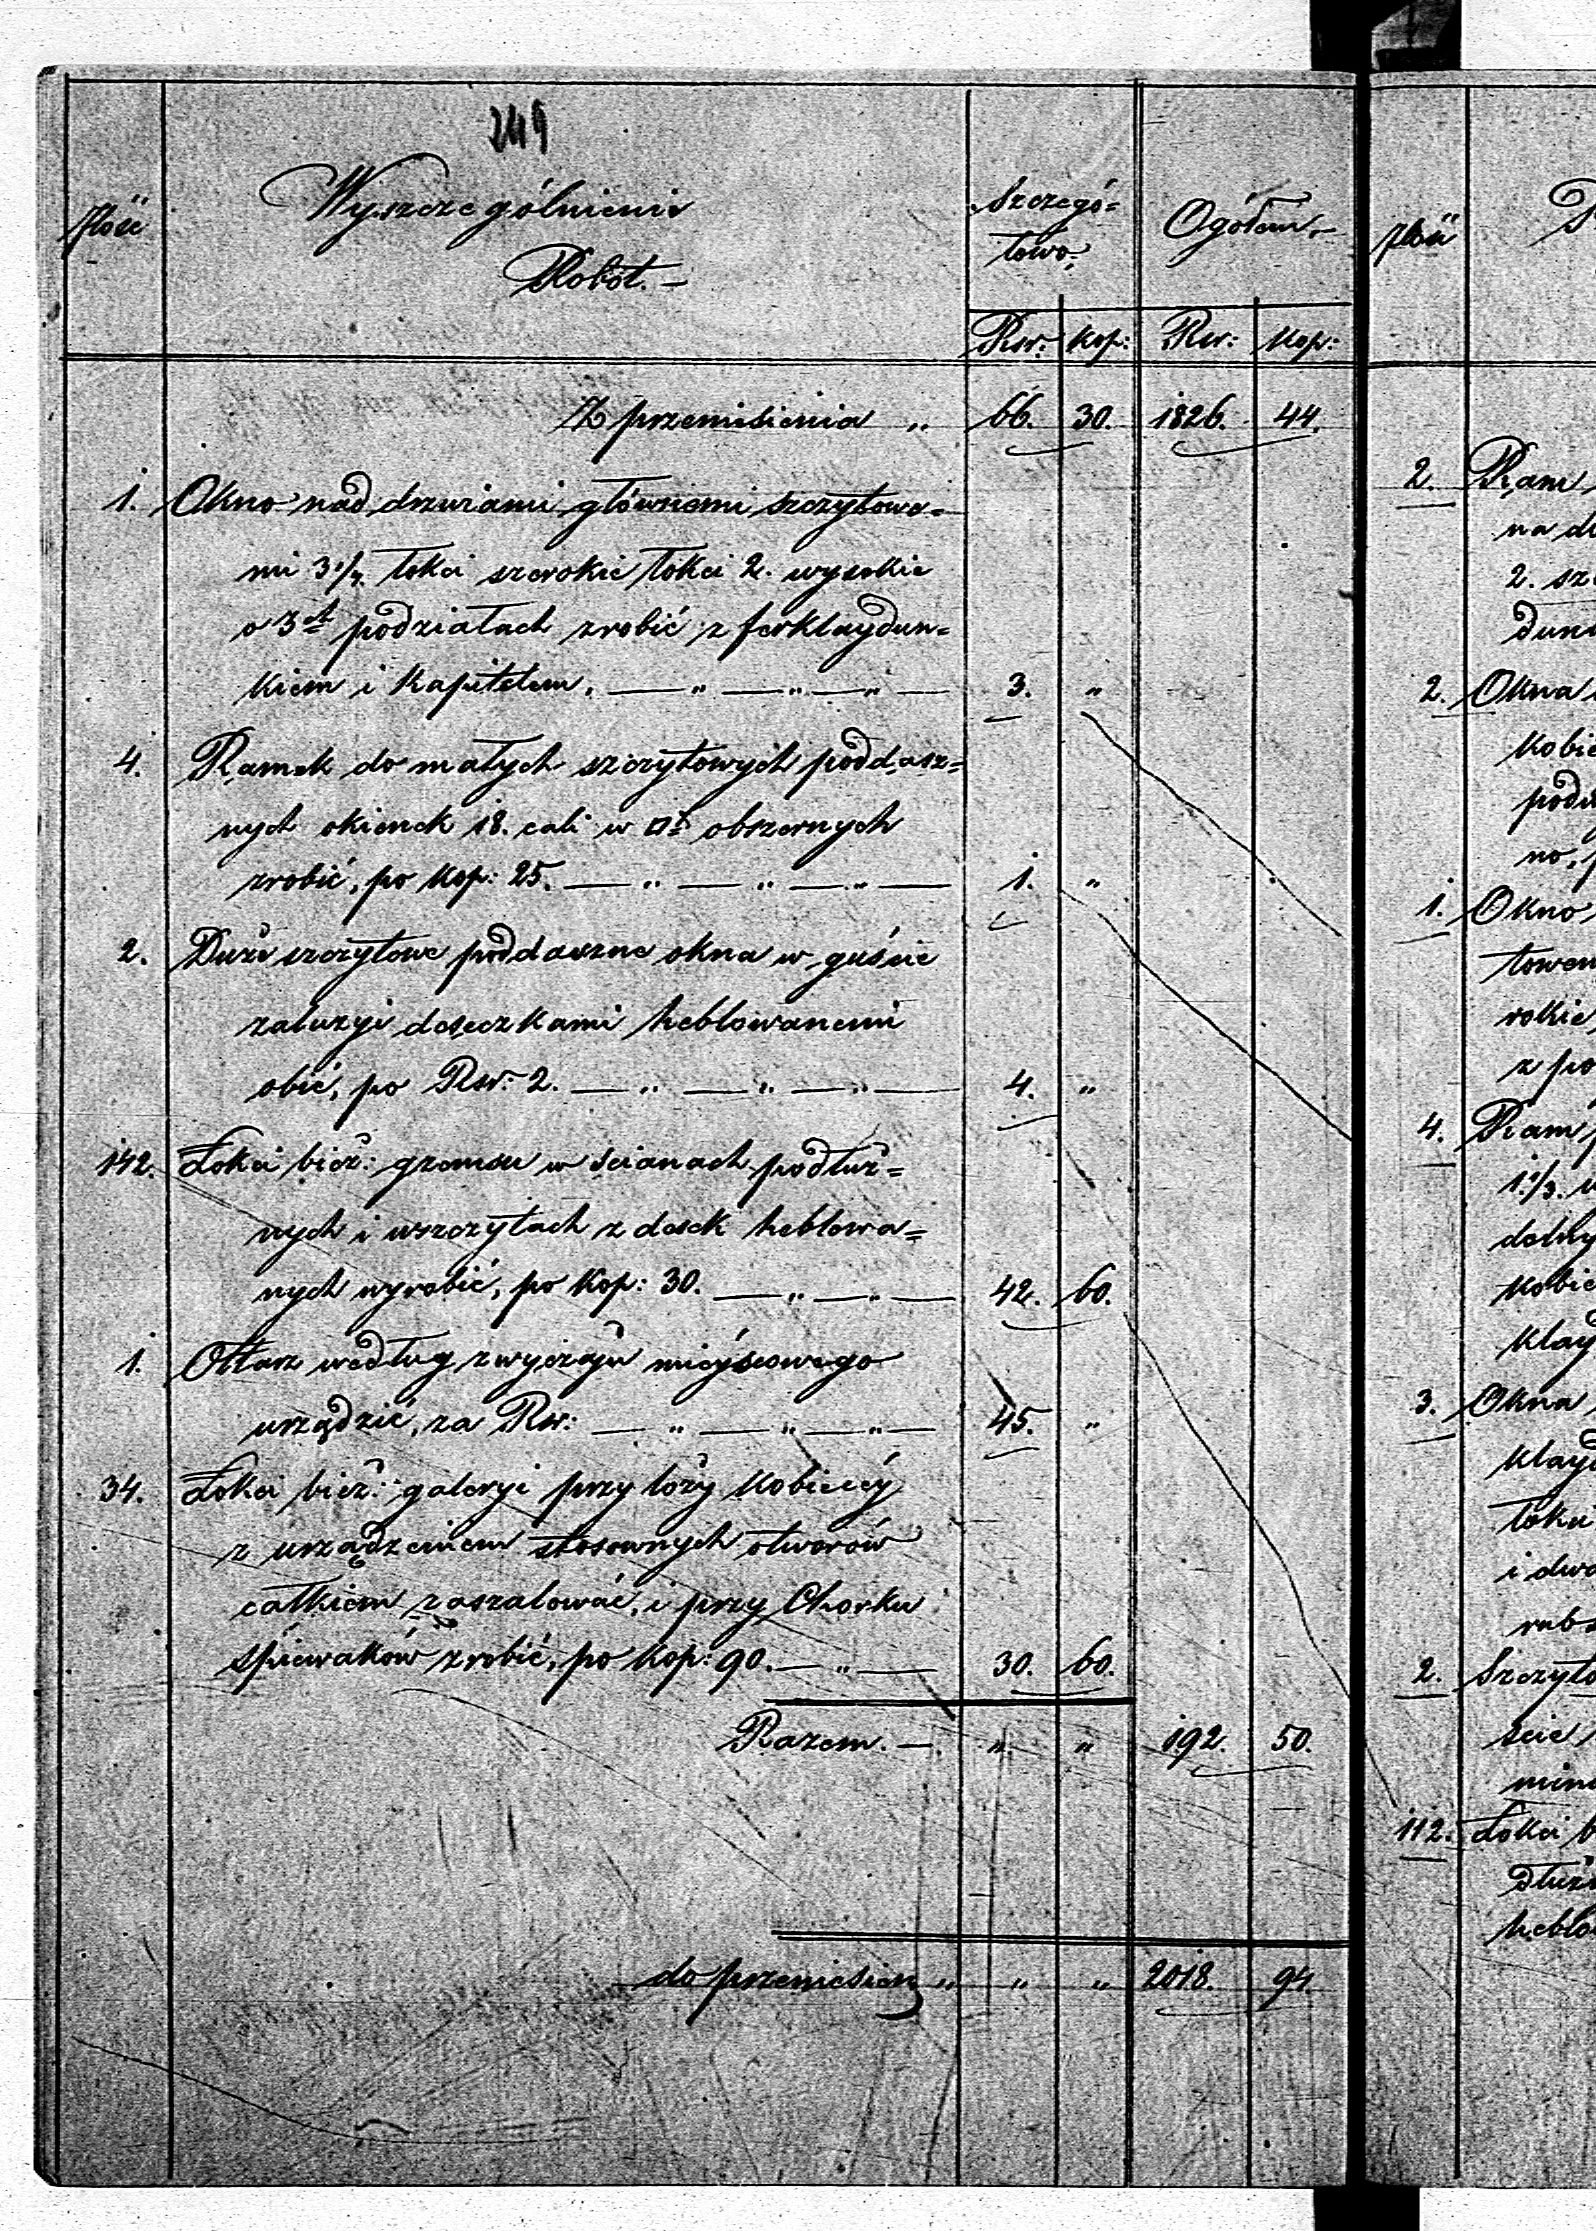 249
Ilość
Wyszczególnienie
Robót. —
Szczegó=
łowo.
Ogółem. —
Rsr: kop: Rsr: kop:
Z przeniesienia „ 66. 30. 1826. 44.
1. Okno nad drzwiami głównemi szczytowe=
mi 3 1/2 łokci szerokie łokci 2. wysokie
o 3ch podziałach zrobić z ferklaydun=
kiem i kapitelem. — „ — „ — „ — 3. „
4. Ramek do małych szczytowych poddasz=
nych okienek 18. cali w □t obszernych
zrobić, po kop: 25. — „ — „ — „ — 1. „
2. Duże szczytowe poddaszne okna w guście
żaluzyi deseczkami heblowanemi
obić, po Rsr: 2. — „ — „ — „ — 4. „
142. Łokci bież: gzemsu w ścianach podłuż=
nych i wszczytach z desek heblowa=
nych wyrobić, po kop: 30. — „ — „ — 42. 60.
1. Ołtarz według zwyczaju mieyscowego
urządzić, za Rsr: — „ — „ — „ — 45. „
34. Łokci bież: galeryi przy loży kobiecéy
z urządzeniem stosownych otworów
całkiem zaszalować, i przy Chorku
śpiewaków zrobić, po kop: 90. — „ — 30. 60.
Razem. — „ „ 192. 50.
do przeniesien „ „ „ 2018. 94.
Ilość
2. Ram
na
2.
2. Okna
1. Okno
rokie
4. Ram
1 1/3.
3. Okna
i
2.
112. Łokci